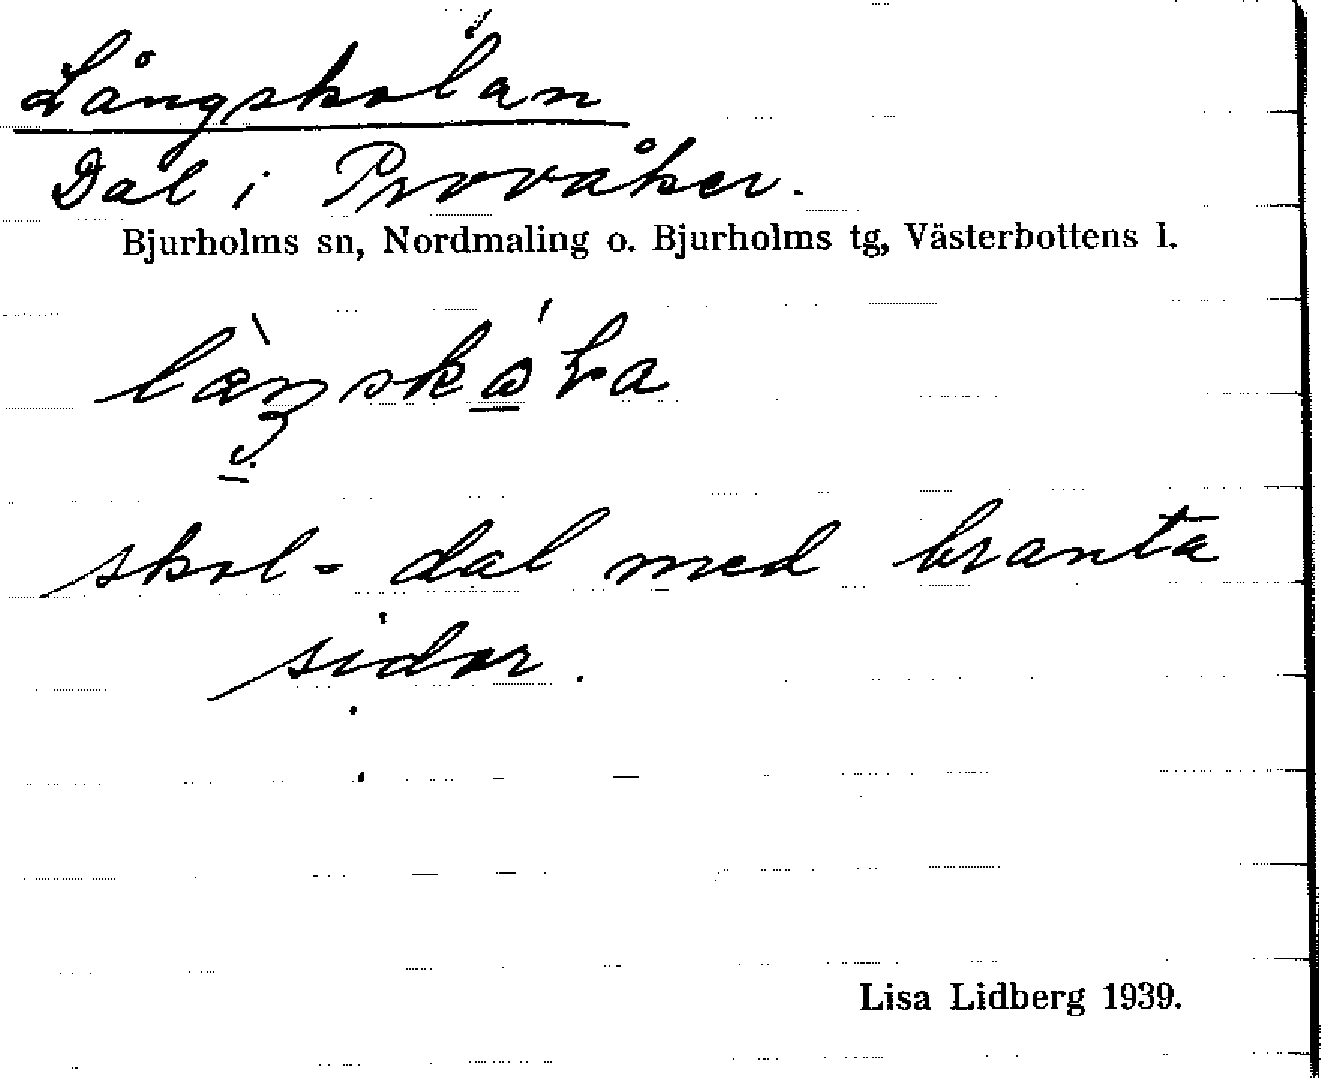 Långskolan
Dal i Provåker.
Bjurholms sn, Nordmaling o. Bjurholms tg, Västerbottens l.
skol = dal med branta
sidor.
Lisa Lidberg 1939.